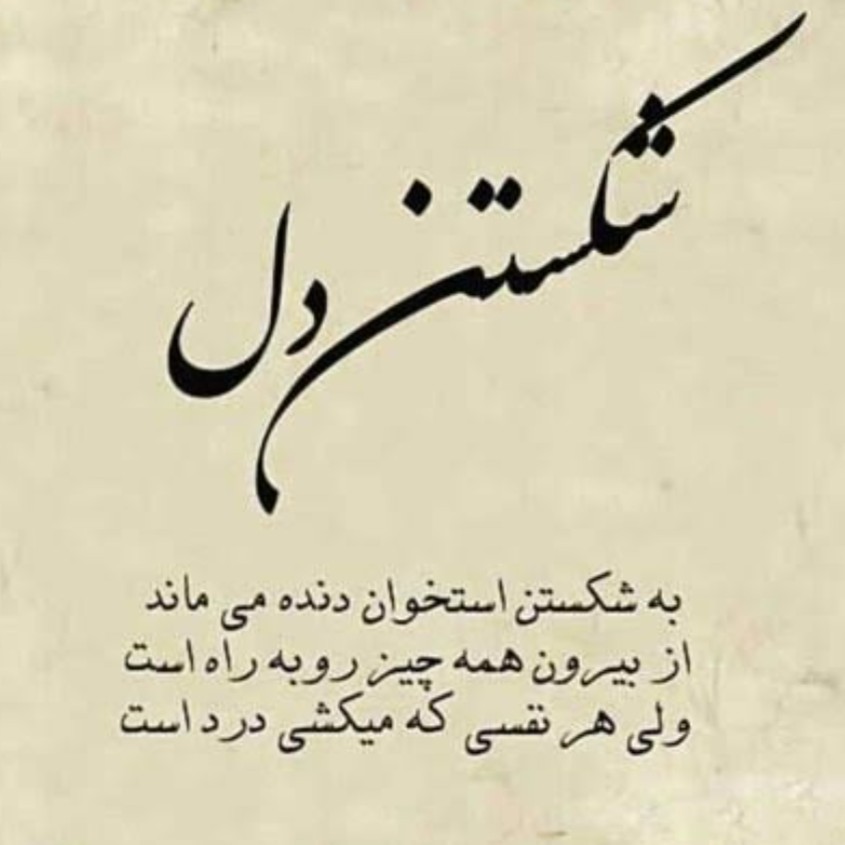 شکستن دل
به شکستن استخوان دنده می ماند
از بیرون همه چیز روبه راه است
ولی هر نفسی که میکشی درد است